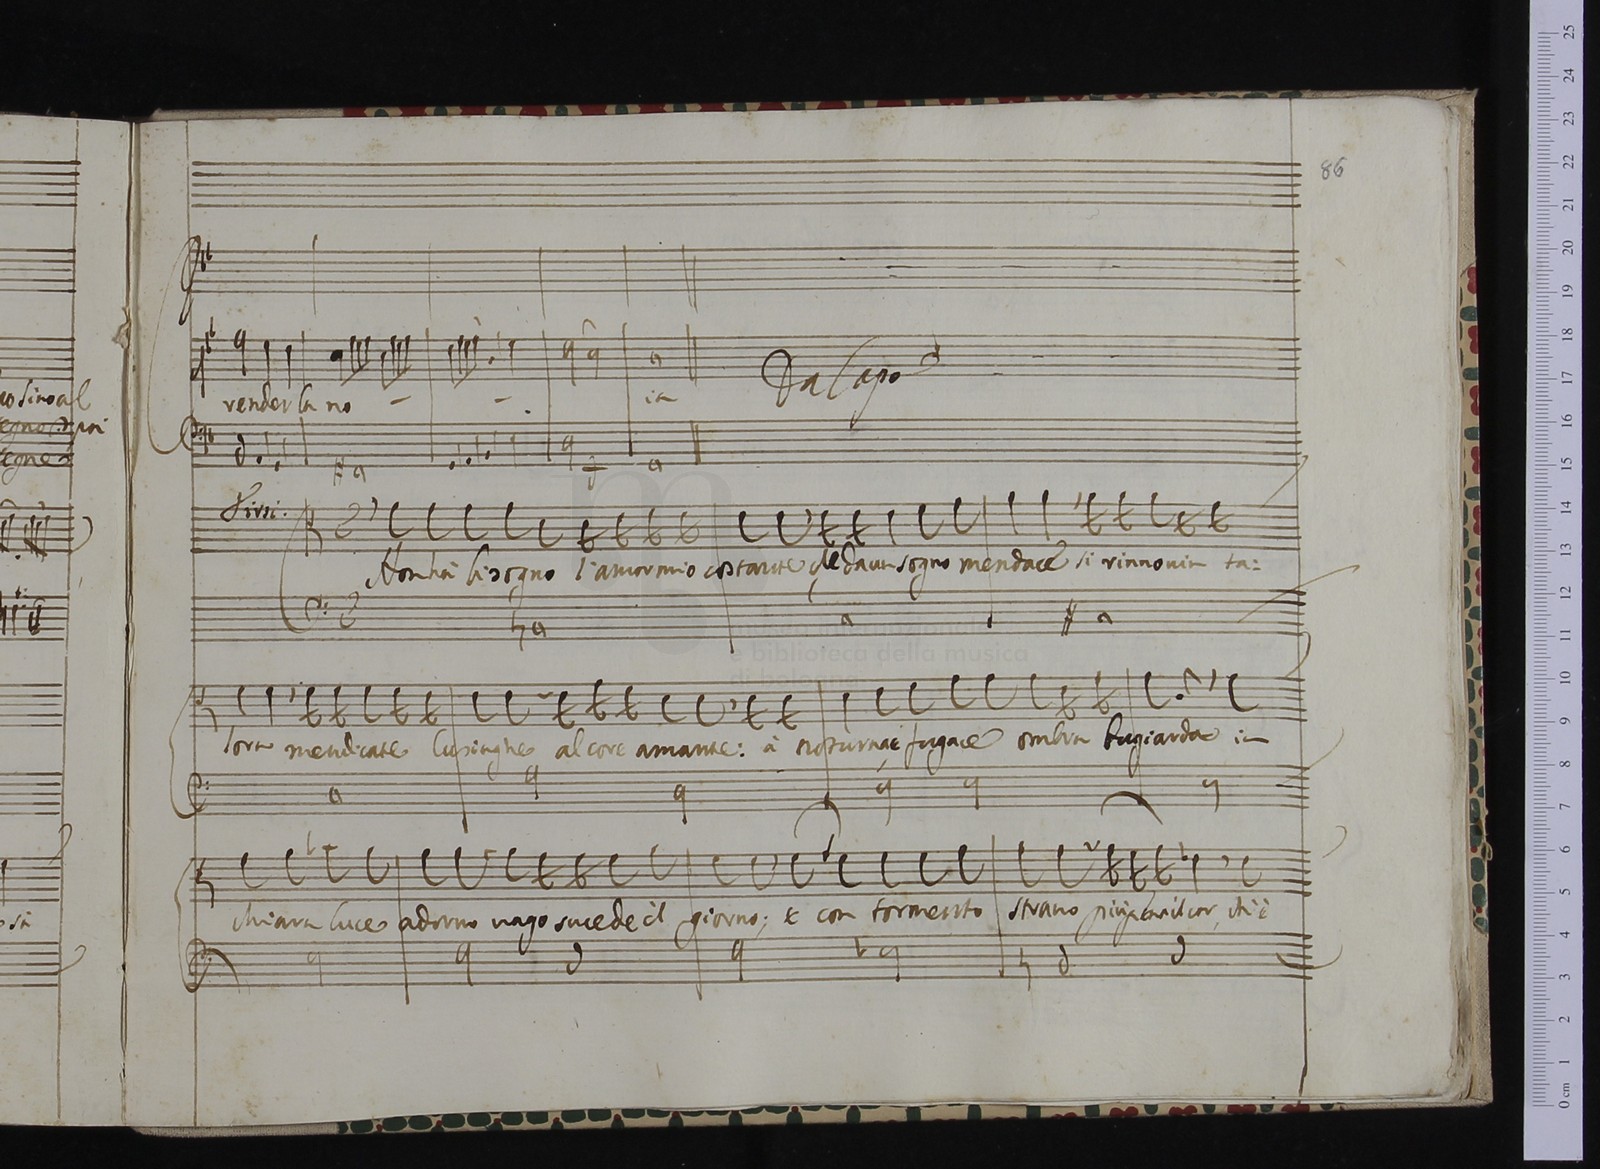 86
render la no - - ia
Da Capo
Tirsi.
Non hà bisogno l'amor mio costante che da un sogno mendace si rinnovin ta:
lora mendicate lusinghe al core amante: à notturna e fugace ombra bugiarda in
chiara luce adorno vago succede il giorno; e con tormento strano più
museo internazionale
e biblioteca della musica
di bologna
0 cm 1 2 3 4 5 6 7 8 9 10 11 12 13 14 15 16 17 18 19 20 21 22 23 24 25